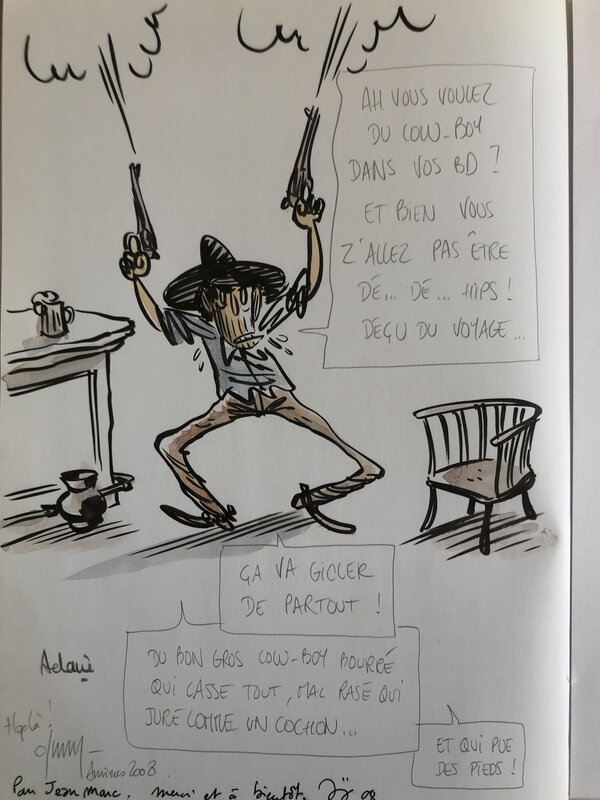 AH VOUS VOULEZ
DU COW-BOY
DANS VOS BD ?
ET BIEN VOUS
Z'ALLEZ PAS ÊTRE
DÉ... DÉ... HIPS !
DEÇU DU VOYAGE...
ÇA VA GICLER
DE PARTOUT !
DU BON GROS COW-BOY BOURRÉ
QUI CASSE TOUT, MAL RASÉ QUI
JURE COMME UN COCHON...
ET QUI PUE
DES PIEDS !
Hoplà !
Amiens 2008.
Pour Jean Marc. merci et à bientôt. 08